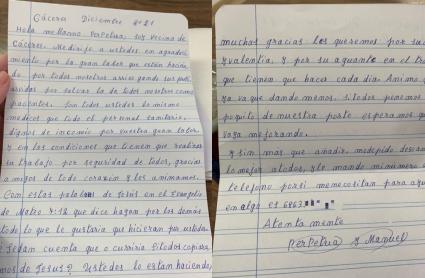 Cáceres Diciembre
Hola me llamo Perpetua, soy vecina de
Cáceres. Medirijo a ustedes en agradeci
miento por la gran labor que están hacien
do por todos nosotros arriesgando sus
vidas por salvar la de todos nosotros como
pacientes. Son todos ustedes lo mismo
medicos que todo el personal sanitario,
dignos de por vuestra gran labor
y en las condiciones que tienen que realizar
su trabajo por seguridad de todos, gracias
amigos de todo corazón y los animamos.
Con estas palabras de Jesús en el Evangelio
de Mateo 7:12 que dice hagan por los demás
todo lo que le gustaria que hicieran por ustedes
Sedan cuenta que ocurriria sitodos copiara
mos de Jesus? Ustedes lo estan haciendo,
muchas gracias los queremos por su
valentia, y por su aguante en el
que tienen que hacer cada dia. Animo
ya va quedando menos. sitodos ponemos
poquito de nuestra parte esperamos que
vaya mejorando.
y sin mas que añadir, me despido
lo mejor atodos, y le mando minumero
telefono porsi menecesitan para
enalgo es 6863
Atenta mente
Perpetua y Manuel